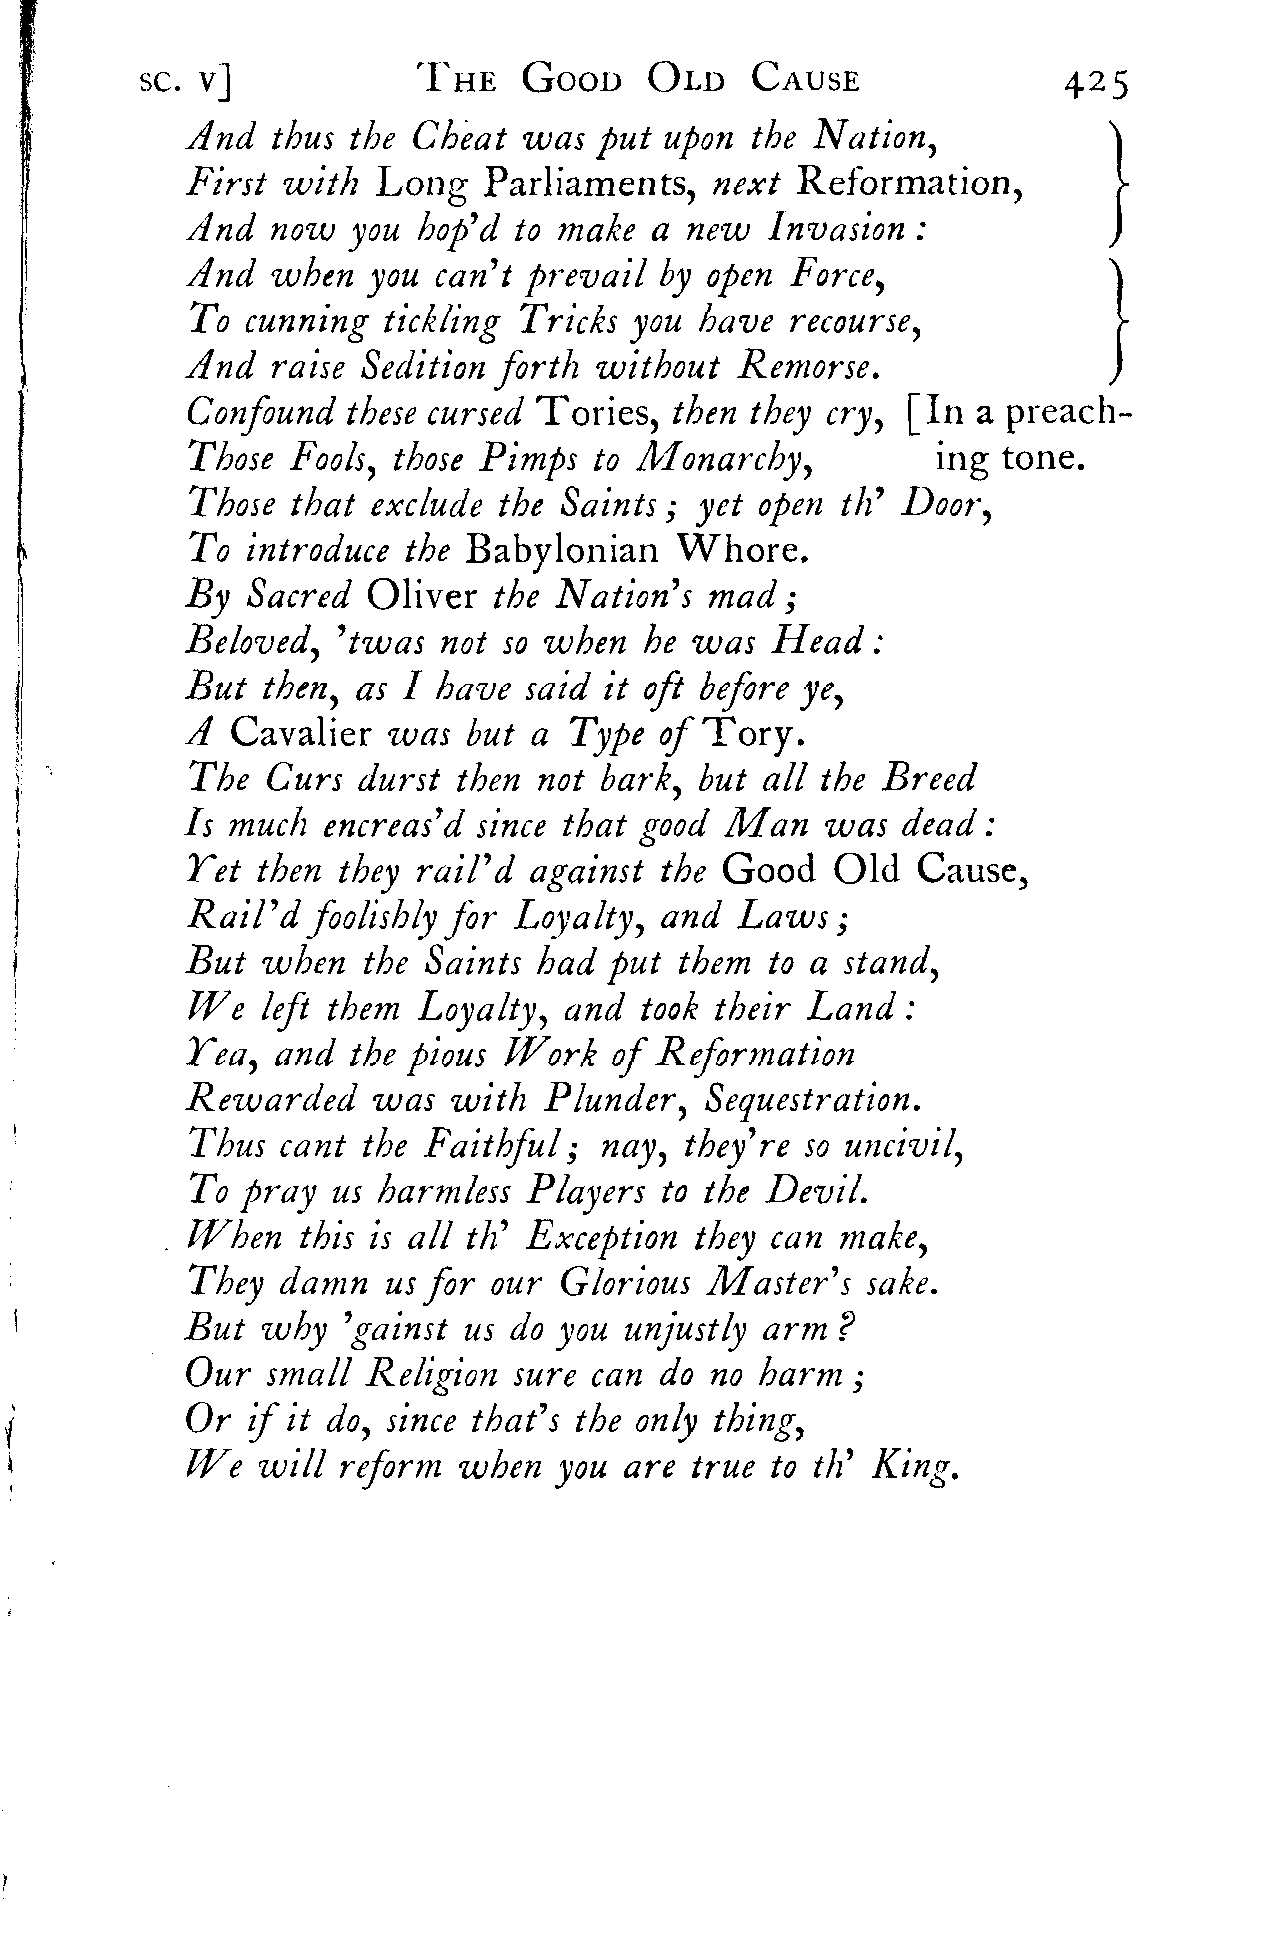 SC. V] THE GOOD OLD CAUSE 425
And thus the Cheat was put upon the Nation,
First with Long Parliaments, next Reformation,
And now you hop'd to make a new Invasion :
And when you can't prevail by open Force,
To cunning tickling Tricks you have recourse,
And raise Sedition forth without Remorse.
Confound these cursed Tories, then they cry, [In a preach-
Those Fools, those Pimps to Monarchy, ing tone.
Those that exclude the Saints ; yet open th' Door,
To introduce the Babylonian Whore.
By Sacred Oliver the Nation's mad ;
Beloved, 'twas not so when he was Head :
But then, as I have said it oft before ye,
A Cavalier was but a Type of Tory.
The Curs durst then not bark, but all the Breed
Is much encreas'd since that good Man was dead :
Yet then they rail'd against the Good Old Cause,
Rail'd foolishly for Loyalty, and Laws ;
But when the Saints had put them to a stand,
We left them Loyalty, and took their Land :
Yea, and the pious Work of Reformation
Rewarded was with Plunder, Sequestration.
Thus cant the Faithful ; nay, they're so uncivil,
To pray us harmless Players to the Devil.
When this is all th' Exception they can make,
They damn us for our Glorious Master's sake.
But why 'gainst us do you unjustly arm ?
Our small Religion sure can do no harm ;
Or if it do, since that's the only thing,
We will reform when you are true to th' King.